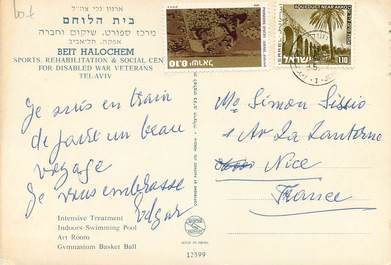 ארגון נכי צה"ל
בית הלוחם
מרכז ספורט, שיקום וחברה
אפקה, תל-אביב
BEIT HALOCHEM
SPORTS, REHABILITATION & SOCIAL CEN
FOR DISABLED WAR VETERANS
TEL-AVIV
Je suis en train
de faire un beau
voyage
Je vous embrasse
Edgar
Intensive Treatment
Indoors Swimming Pool
Art Room
Gymnasium Basket Ball
ישראל 0.10
ISRAEL ישראל 1.10
Mo Simon Sissio
1 Av La Lanterne
Nice
France
12399